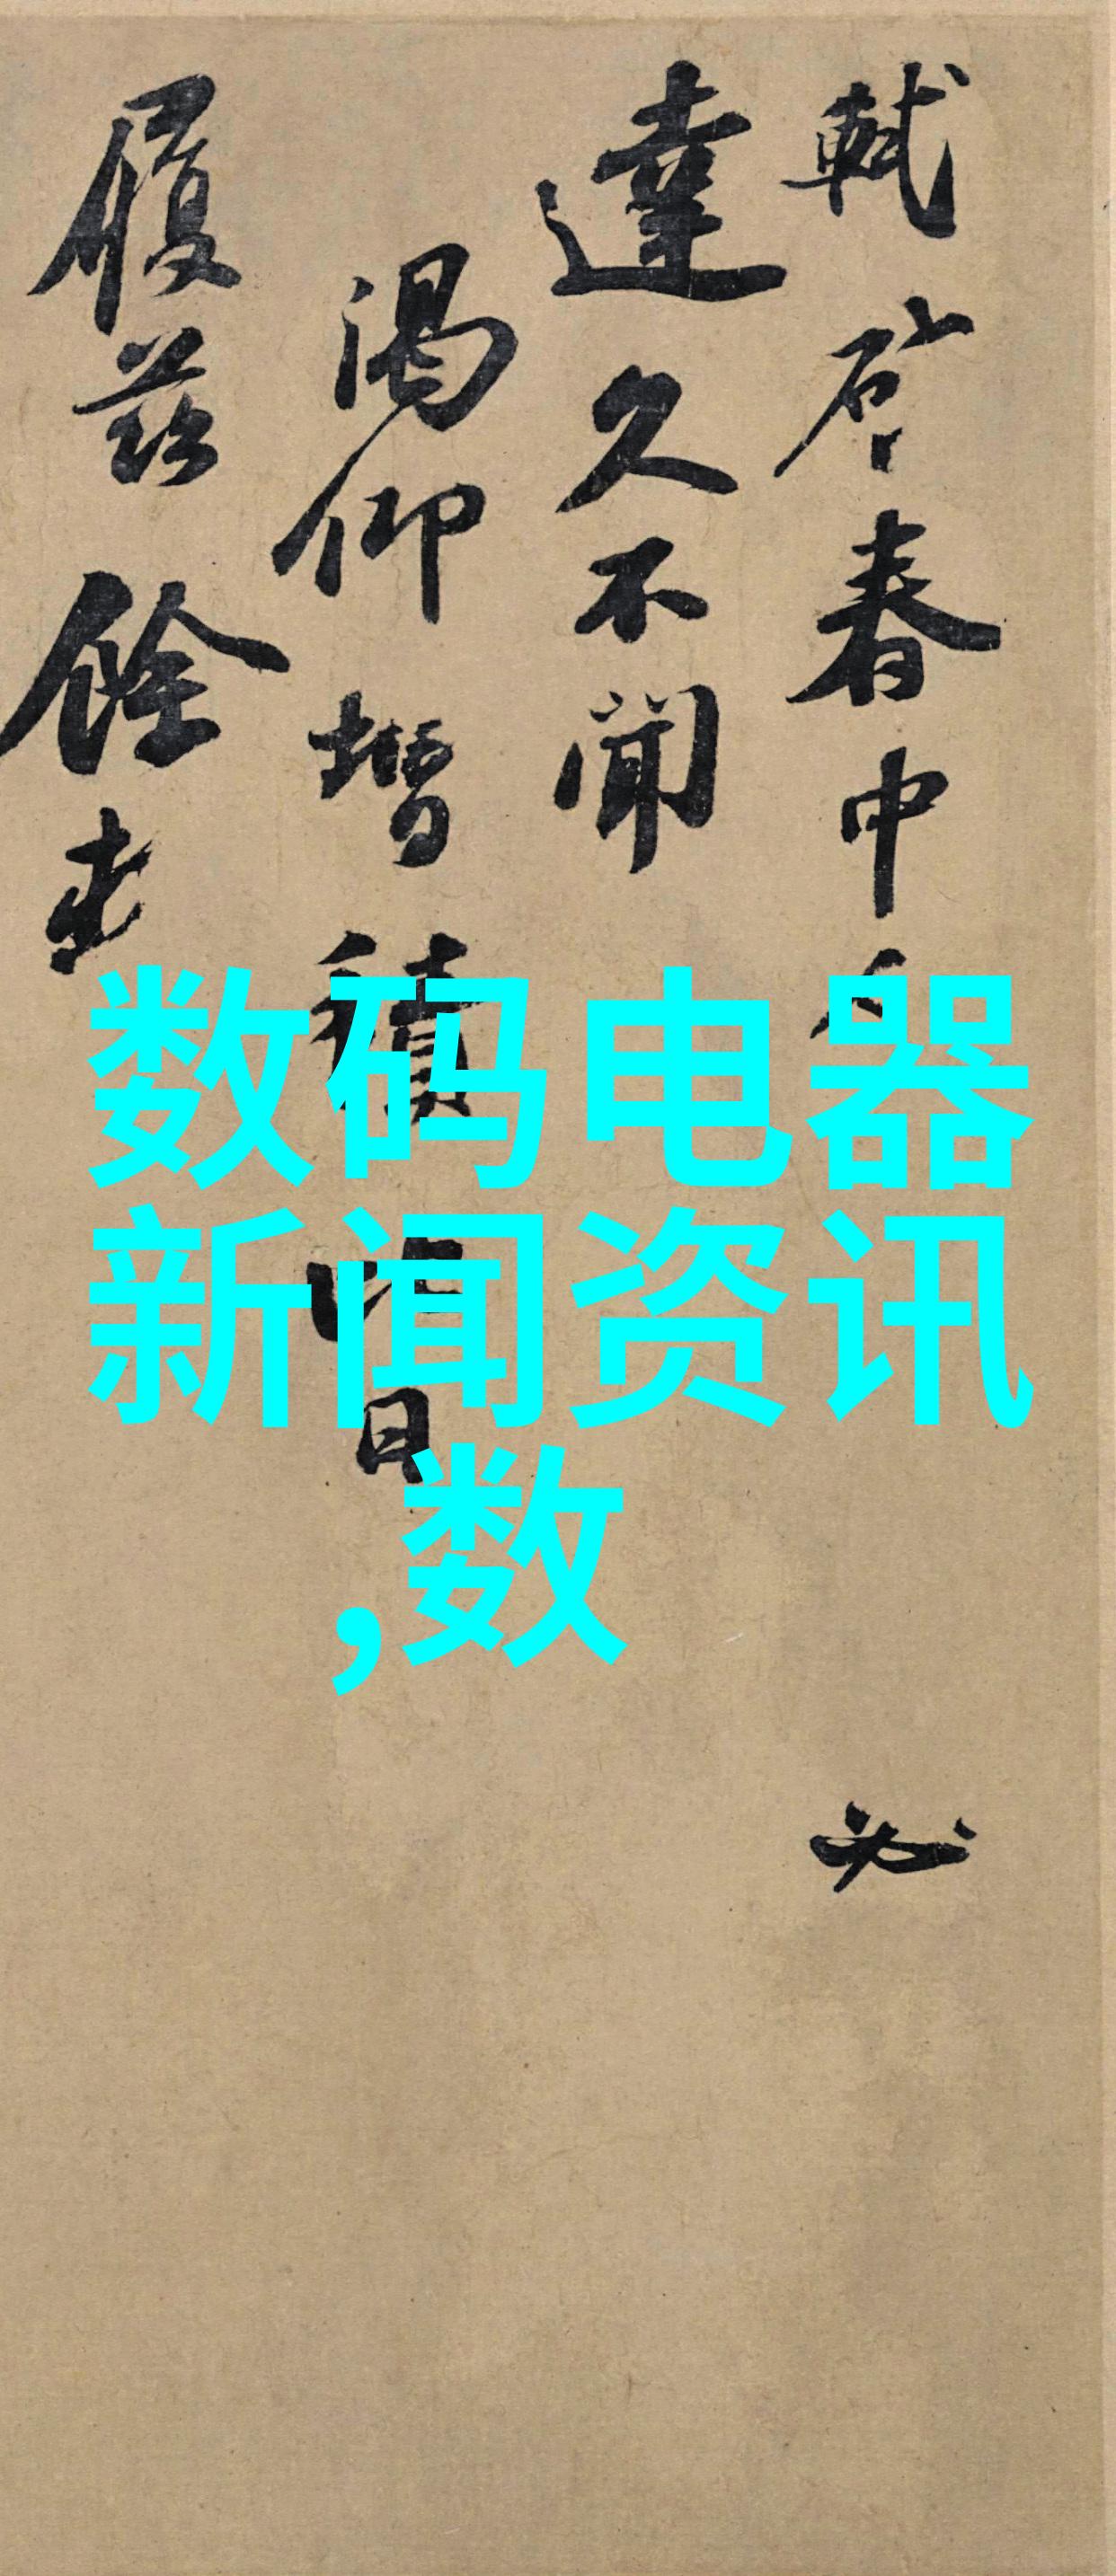 軾啓春中
必
達久不聞
渴仰增積
日
履茲餘
数码电器
新闻资讯
,数